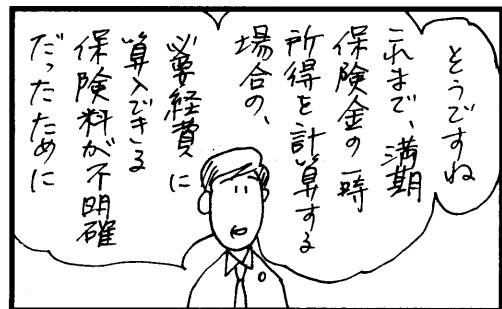 そうですね
これまで、満期
保険金の一時
所得を計算する
場合の、
必要経費に
算入できる
保険料が不明確
だったために